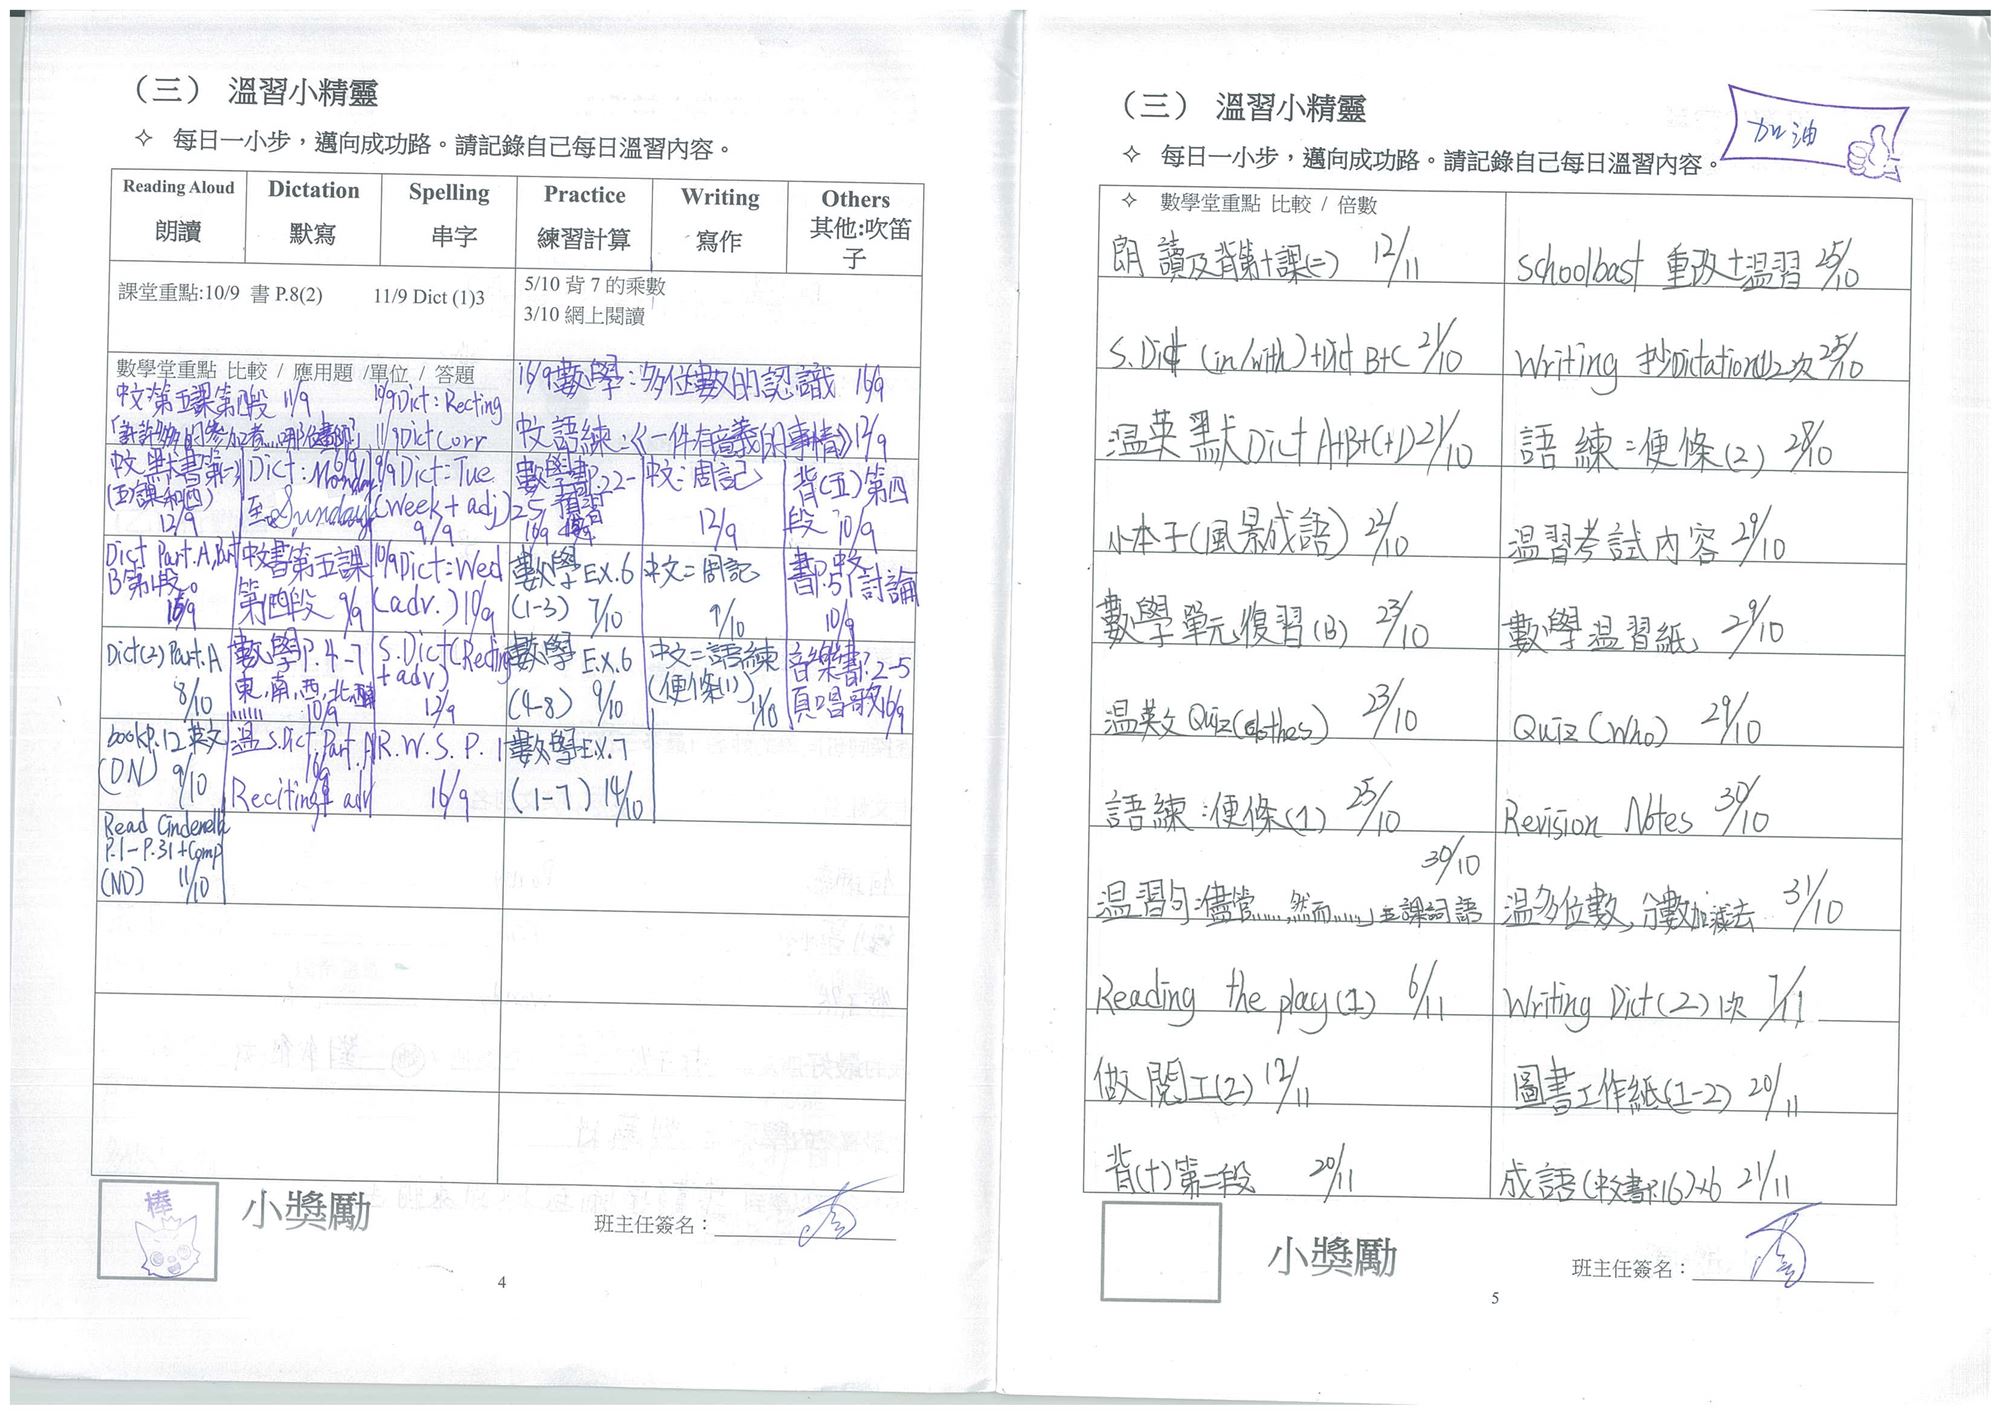 （三） 溫習小精靈
✧ 每日一小步，邁向成功路。請記錄自己每日溫習內容。
Reading Aloud Dictation Spelling Practice Writing Others
朗讀 默寫 串字 練習計算 寫作 其他:吹笛子
課堂重點:10/9 書 P.8(2) 11/9 Dict (1)3
5/10 背 7 的乘數
3/10 網上閱讀
數學堂重點 比較 / 應用題 /單位 / 答題
中文:第五課第四段 11/9
10/9 Dict: Recting
11/9 Dict Corr
16/9 數學:多位數的認識 16/9
中文語練:《一件有意義的事情》12/9
中文默書第(一)、
(五)課和四)
12/9
Dict: Monday
至 Sunday
9/9 Dict: Tue
(week + adj)
9/9
數學書P.22-
25 預習
16/9
中文:周記
12/9
背(五)第四
段 10/9
Dict Part.A,Part
B第1段。
15/9
中文書第五課
第四段 9/9
10/9 Dict:Wed
(adv.) 10/9
數學 EX.6
(1-3) 7/10
中文:周記
9/10
書P.51討論
10/9
Dict(2) Part.A
8/10
數學P.4-7
東,南,西,北
10/9
S.Dict(Recting
+adv)
12/9
數學 E.X.6
(4-8) 9/10
中文:語練
(便條(1)) 11/10
音樂書P.2-5
頁唱歌16/9
bookP.12英文
(DN) 9/10
溫S.Dict.Part.A
16/9
Reciting+ adv
R.W.S.P.1
16/9
數學EX.7
(1-7) 14/10
Read Cinderella
P.1-P.31+Comp
(ND) 11/10
棒
小獎勵
班主任簽名：
4
（三） 溫習小精靈
加油
✧ 每日一小步，邁向成功路。請記錄自己每日溫習內容。
✧ 數學堂重點 比較 / 倍數
朗讀及背第十課(二) 12/11
Schoolbast 重改+溫習 25/10
S.Dict (in/with)+Dict B+C 21/10
Writing 抄Dictation(1)2次 25/10
溫英默Dict A+B+C+D 21/10
語練:便條(2) 28/10
小本子(風景成語) 22/10
溫習考試內容 29/10
數學單元復習(B) 23/10
數學溫習紙 29/10
溫英文Quiz(clothes) 23/10
Quiz (Who) 29/10
語練:便條(1) 25/10
Revision Notes 30/10
30/10
溫習句:儘管……,然而……,五課詞語
溫多位數,分數加減法 31/10
Reading the play(1) 6/11
Writing Dict(2)1次 7/11
做閱工(2) 12/11
圖書工作紙(1-2) 20/11
背(十)第二段 20/11
成語(中文書P.16)x6 21/11
小獎勵
班主任簽名：
5